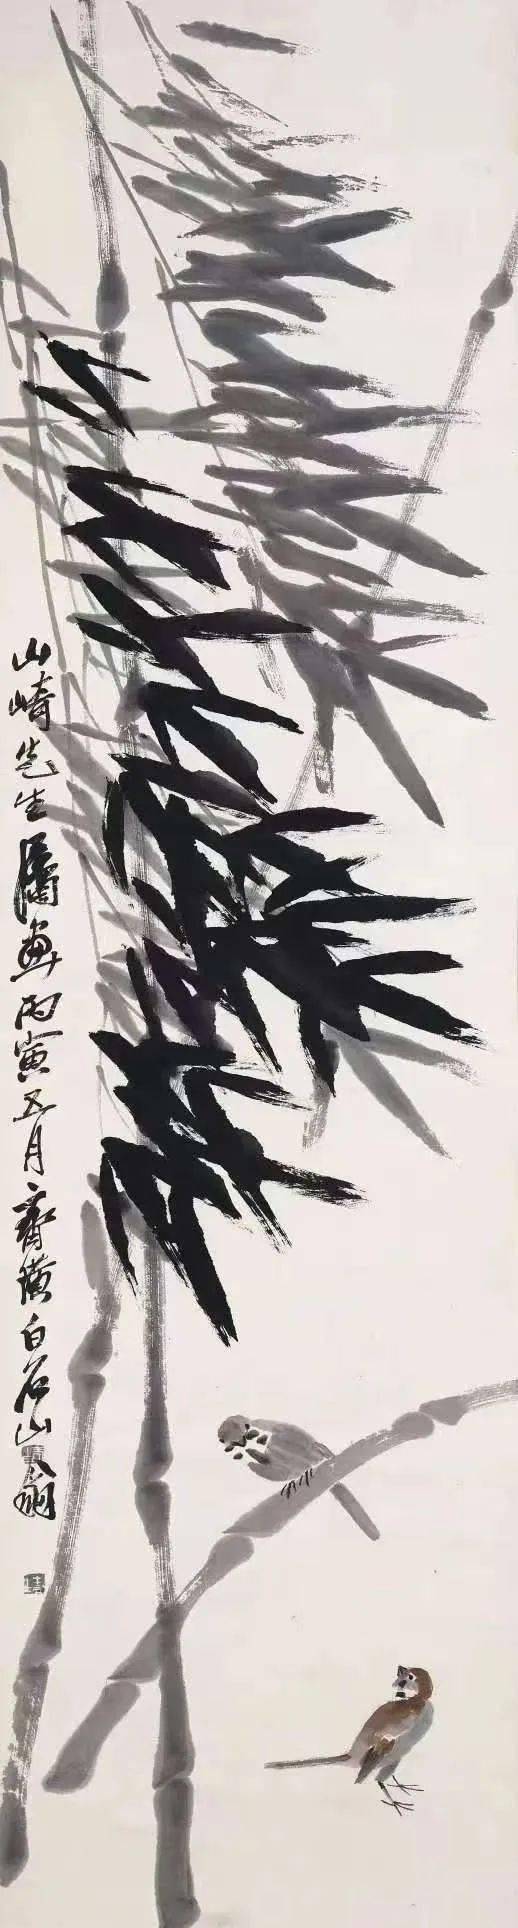 山崎先生屬畫丙寅五月齊璜白石山翁